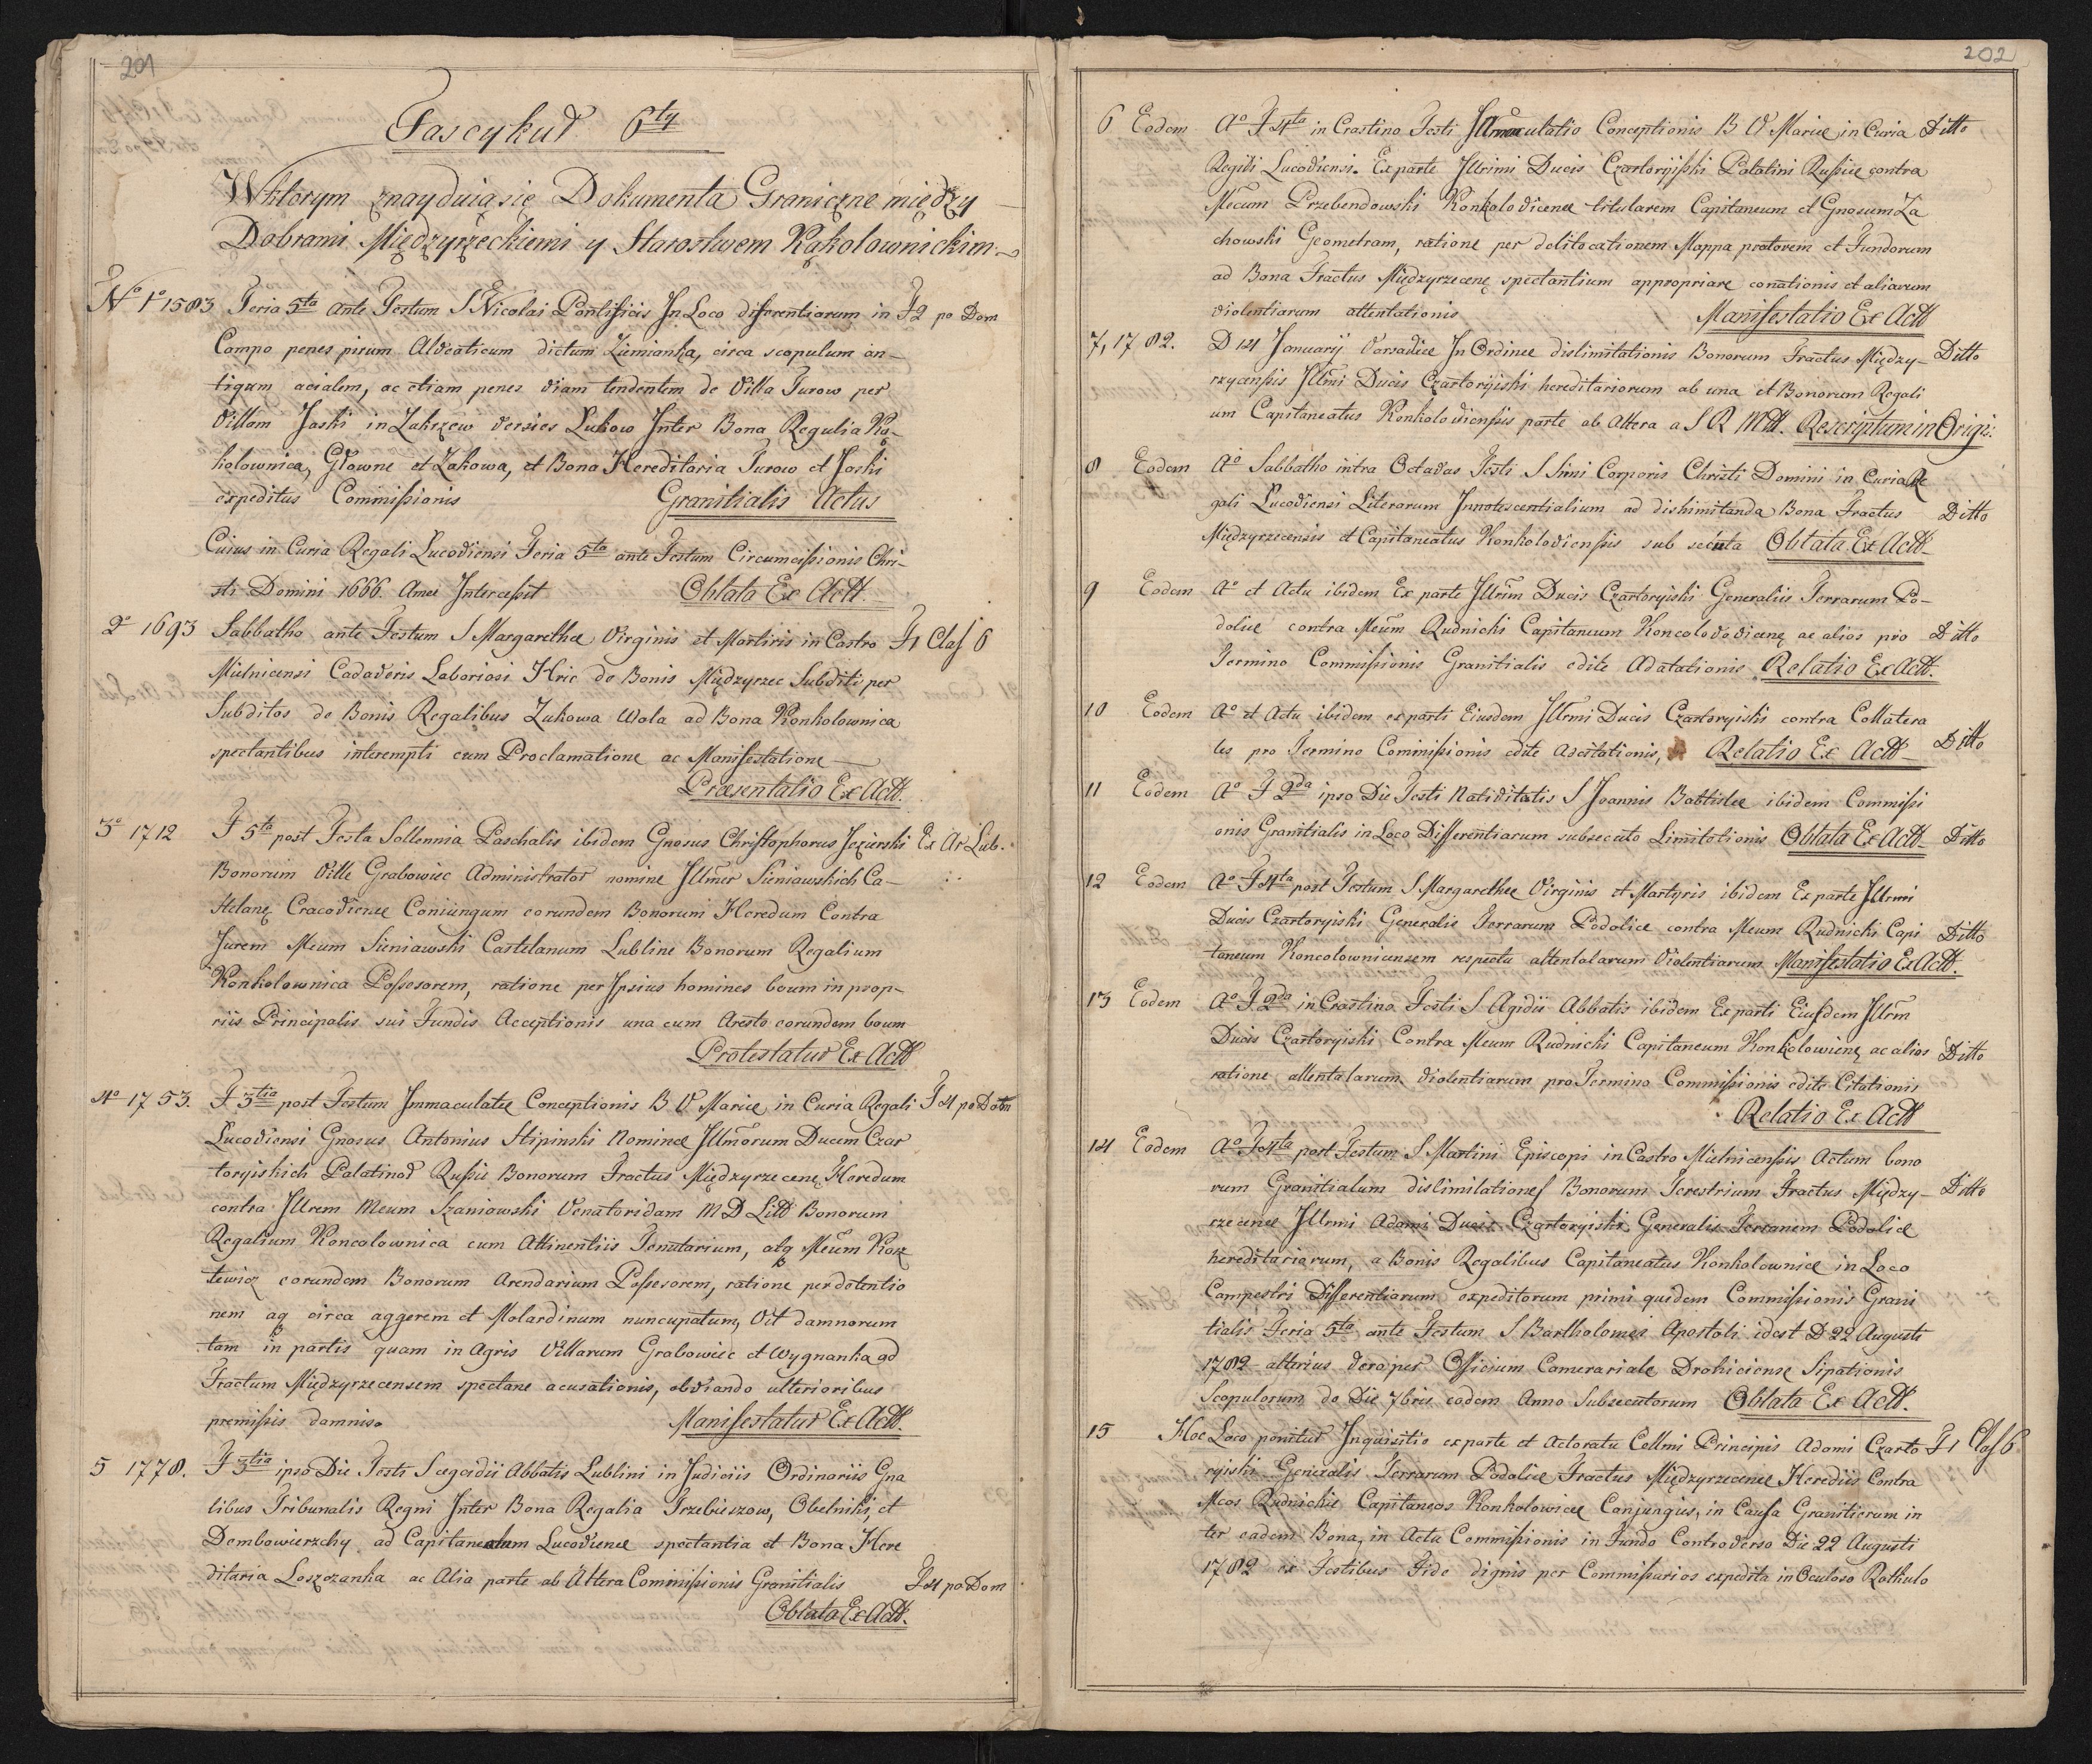 201
Fascykuł 6ty
Wktorym znayduią się Dokumenta Graniczne między
Dobrami Międzyrzeckiemi y Starostwem Kąkolownickim
No 1o 1583 Feria 5ta ante Festum S Nicolai Pontificis In Loco differentiarum in F 2 po Dom
Campo penes pirum Alveaticum dictum Ziemianka, circa scopulum an-
tiqum acialem, ac etiam penes viam tendentem de Villa Turow per
Villam Jaski in Zakrzew versies Lukow Inter Bona Regulia Ką-
kolownica, Głowne et Zakowa, et Bona Hereditaria Turow et Jaski
expeditus Commissionis Granitialis Actus
Cuius in Curia Regali Lucoviensi Feria 5ta ante Festum Circumcissionis Chri-
sti Domini 1666. Anee Intercessit Oblata Ex Actt.
2o 1693 Sabbatho ante Festum S Margarethæ Virginis et Martiris in Castro F 1 Clas 6
Mielnicensi Cadaveris Laboriosi Hric de Bonis Międzyrzec Subditi per
Subditos de Bonis Regalibus Zukowa Wola ad Bona Konkolownica
spectantibus interempti cum Proclamatione ac Manifestatione
Præsentatio Ex Actt.
3o 1712 F 5ta post Festa Sollennia Paschalis ibidem Gnosus Christophorus Jezierski Ex Ar Lub.
Bonorum Ville Grabowiec Administrator nomine Illmer Sieniawskich Ca-
stelanę Cracoviense Coniungum eorundem Bonorum Heredum Contra
Jurem Meum Sieniawski Castelanum Lubline Bonorum Regalium
Konkolownica Possesorem, ratione per Ipsius homines boum in prop-
riis Principalis sui Fundis Acceptionis una cum Aresto eorundem boum
Protestatur Ex Actt
4o 1753. F 3tia post Festum Immaculatæ Conceptionis B V Mariæ in Curia Regali F 4 po Dom
Lucoviensi Gnosus Antonius Stipinski Nomineæ Illmorum Ducem Czar
toryiskich Palatinov Russiæ Bonorum Tractus Międzyrzecenę Heredum
contra Illrem Meum Szaniawski Venatoridam M D Litt Bonorum
Regalium Koncolownica cum Attinentiis Tenutarium, atq Meum Kosz
tewicz eorundem Bonorum Arendarium Possesorem, ratione per detentio
nem aq circa aggerem et Molardinum nuncupatum, Vit damnorum
tam in partis quam in Agris Villarum Grabowiec et Wygnanka ad
Tractum Międzyrzecensem spectane acusationis, obviando ulterioribus
premissis damniso Manifestatur Ex Actt.
5 1778. F 3tia ipso Die Festi S ægidii Abbatis Lublini in Judiciis Ordinariis Gna
libus Tribunalis Regni Inter Bona Regalia Trzebieszow, Obelniki, et
Dembowierzchy ad Capitaneatum Lucovienæ spectantia et Bona Here
ditaria Loszczanka ac Alia parte ab Altera Commissionis Granitialis F 4 po Dom
Oblata Ex Actt.
202
6 Eodem Ao F 4ta in Crastino Festi Immaculatio Conceptionis B V Mariæ in Curia Ditto
Regili Lucoviensi. Ex parte Illrimi Ducis Czartoryisski Palatini Russiæ contra
Mecum Przebendowski Konkolovicenæ titularem Capitaneum et Gnosum Za
chowski Geometram, ratione per delitocationem Mappa pratorem et Fundorum
ad Bona Tractus Międzyrzecenę spectantium appropriare conationis et aliarum
violentiarum attentationis Manifestatio Ex Actt
7, 1782. D 14 January Varsaviæ In Ordinee dislimitationis Bonorum Tractus Między- Ditto
rzycensis Illmi Ducis Czartoryiski hereditariorum ab una et Bonorum Regali
um Capitaneatus Konkoloviensis parte ab Altera a S R Mtt. Rescriptum in Origi:
8 Eodem Ao Sabbatho intra Octavas Festi S Simi Corporis Christi Domini in Curia Re
gali Lucoviensi Literarum Innotescentialium ad dishimitanda Bona Tractus Ditto
Międzyrzicensis et Capitaneatus Konkoloviensis sub secuta Oblata Ex Actt
9 Eodem Ao et Actu ibidem Ex parte Illrim Ducis Czartoryiski Generaliis Terrarum Po-
doliæ contra Meum Rudnicki Capitaneum Koncolovovicenę ac alios pro Ditto
Termino Commissionis Granitialis edite Adatationis Relatio Ex Actt.
10 Eodem Ao et Actu ibidem ex parti Eiusdem Illrmi Ducis Czartoryiski contra Collatera
les pro Termino Commissionis edite Adcitationis, Relatio Ex Actt Ditto
11 Eodem Ao F 2da ipso Die Festi Nativitatis S Joannis Babtistæ ibidem Commissi
onis Granitialis in Loco Differentiarum subsecuto Limitationis Oblata Ex Actt Ditto
12 Eodem Ao F 4ta post Festum S Margarethæ Virginis et Martyris ibidem Ex parte Illrmi
Ducis Czartoryiski Generalis Terrarum Podoliæ contra Meum Rudnicki Capi Ditto
taneum Koncolowniensem respectu attentatarum Violentiarum Manifestatio Ex Actt.
13 Eodem Ao F 2da in Crastino Festi S Agidii Abbatis ibidem Ex parti Eiusdem Illrm
Ducis Czartoryiski Contra Meum Rudnicki Capitaneum Konkolowienę ac alios Ditto
ratione attentatarum violentiarum pro Termino Commissionis edite Citationis
Relatio Ex Actt
14 Eodem Ao F 4ta post Festum S Martini Episcopi in Castro Mielnicensis Actum bono
rum Granitialum dislimilationes Bonorum Terestrium Tractus Między- Ditto
rzecenæ Illrmi Adami Ducis Czartoryiski Generalis Terranem Podoliæ
hereditariorum, a Bonis Regalibus Capitaneatus Konkolowniæ in Loco
Campestri Differentiarum expeditorum primi quidem Commissionis Grani
tialis Feria 5ta ante Festum S Bartholomei Apostoli idest D 22 Augusti
1782 alterius vero per Officium Camerariale Drohiciense Sipationis
Scopulorum de Die 7bris eodem Anno Subsecutorum Oblata Ex Actt.
15 Hoc Loco ponitur Inquisitio ex parte et Actoratu Cellmi Principis Adami Czarto F 1 Clas 6
ryiski Generalis Terrarum Podoliæ Tractus Międzyrzecenæ Herediis Contra
Mcos Rudnickie Capitaneos Konkolowicæ Conjungius, in Causa Granitierum in
ter eadem Bona, in Actu Commissionis in Fundo Controverso Die 22 Augusti
1782 ex Testibus Fide dignis per Commissarios expedita in Oculoso Rothulo